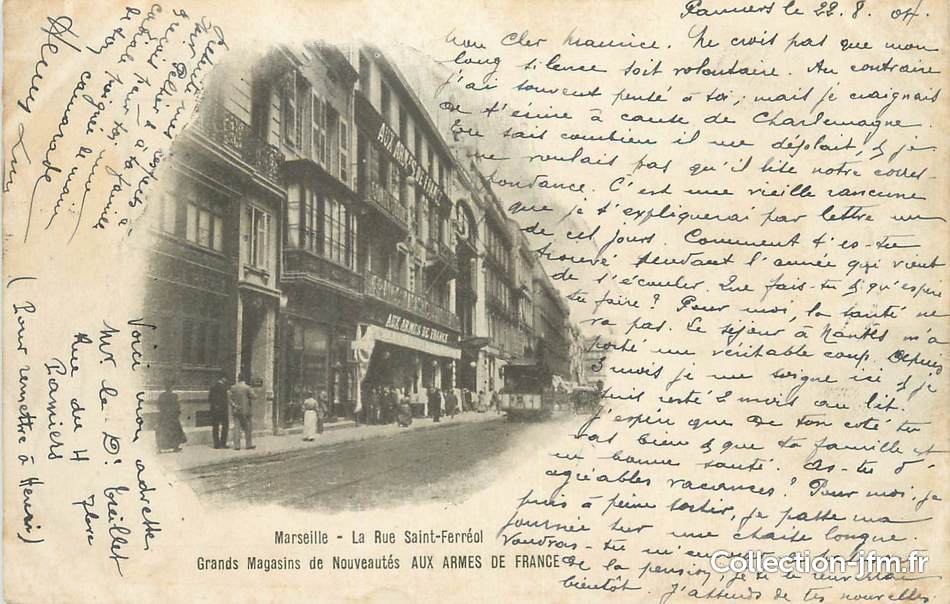 Pamiers le 22. 8. 04.
Mon Cher Maurice. Ne crois pas que mon
long silence soit volontaire. Au contraire
j'ai souvent pensé à toi; mais je craignais
de t'écrire à cause de Charlemagne.
Tu sais combien il me déplait, & je
ne voulais pas qu'il lise notre corres-
pondance. C'est une vieille rancune
que je t'expliquerai par lettre un
de ces jours. Comment t'es-tu
trouvé pendant l'année qui vient
de s'écouler. Que fais-tu & qu'espères
tu faire? Pour moi, la santé ne
va pas. Le séjour à Nantes m'a
porté un véritable coup. Depuis
3 mois je me soigne ici, & je
suis resté 2 mois au lit.
J'espère que de ton coté tu
vas bien & que ta famille est
en bonne santé. As-tu d'
agréables vacances? Pour moi, je
puis à peine sortir, je passe ma
journée sur une chaise longue.
Voudrais-tu m'envoyer
de la pension, je te
bientôt. J'attends de tes nouvelles.
à ta famille
camarade
Voici mon adresse
Mr le Dr
Rue du 4
Pamiers
(Pour remettre à Henri)
AUX ARMES DE FRANCE
AUX ARMES DE FRANCE
Marseille - La Rue Saint-Ferréol
Grands Magasins de Nouveautés AUX ARMES DE FRANCE
Collection-jfm.fr